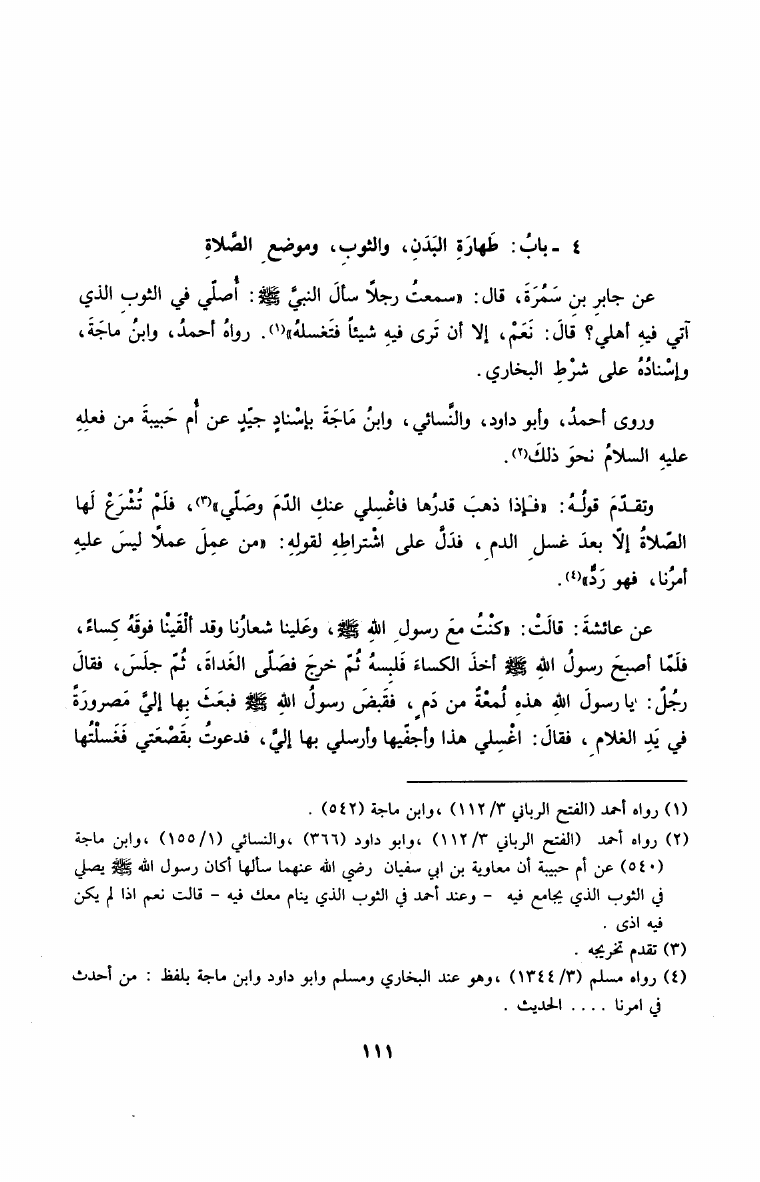 ٤ - بابُ: طَهارَةِ البَدَنِ، والثوبِ، وموضعِ الصَّلاةِ
عن جابرِ بنِ سَمُرَةَ، قال: «سمعتُ رجلًا سألَ النبيَّ ﷺ: أُصلّي في الثوبِ الذي
آتي فيهِ أهلي؟ قالَ: نَعَمْ، إلا أن تَرى فيهِ شيئاً فَتَغسلهُ»(١). رواهُ أحمدُ، وابنُ ماجَةَ،
وإسْنادُهُ على شرْطِ البخاري.
وروى أحمدُ، وأبو داود، والنَّسائي، وابنُ مَاجَةَ بإسْنادٍ جيّدٍ عن أُم حَبيبةَ من فعلِهِ
عليهِ السلامُ نحوَ ذلكَ(٢).
وتقدّمَ قولُهُ: «فإذا ذهبَ قدرُها فاغْسِلي عنكِ الدّمَ وصَلّي»(٣)، فلَمْ تُشْرَعْ لَها
الصّلاةُ إلّا بعدَ غسلِ الدمِ، فدَلَّ على اشْتراطِهِ لقولِهِ: «من عمِلَ عملًا ليسَ عليهِ
أمرُنا، فهو رَدٌّ»(٤).
عن عائشةَ: قالَتْ: «كنْتُ معَ رسولِ اللهِ ﷺ، وعَلينا شعارُنا وقد ألْقَيْنا فوقَهُ كِساءً،
فلَمّا أصبحَ رسولُ اللهِ ﷺ أخذَ الكساءَ فَلبِسهُ ثُمّ خرجَ فصَلّى الغَداةَ، ثُمّ جلَسَ، فقالَ
رجُلٌ: يا رسولَ اللهِ هذهِ لُمعْةٌ من دَمٍ، فقَبضَ رسولُ اللهِ ﷺ فبعَثَ بها إليَّ مَصرورَةً
في يَدِ الغلامِ، فقالَ: اغْسِلي هذا وأجفّيها وأرسلي بها إليَّ، فدعوتُ بقَصْعَتي فَغَسلْتُها
(١) رواه أحمد (الفتح الرباني ١١٢/٣)، وابن ماجة (٥٤٢).
(٢) رواه أحمد (الفتح الرباني ١١٢/٣)، وابو داود (٣٦٦)، والنسائي (١٥٥/١)، وابن ماجة
(٥٤٠) عن أم حبيبة أن معاوية بن ابي سفيان رضي الله عنهما سألها أكان رسول الله ﷺ يصلي
في الثوب الذي يجامع فيه - وعند أحمد في الثوب الذي ينام معك فيه - قالت نعم اذا لم يكن
فيه اذى.
(٣) تقدم تخريجه.
(٤) رواه مسلم (١٣٤٤/٣)، وهو عند البخاري ومسلم وابو داود وابن ماجة بلفظ: من أحدث
في امرنا .... الحديث.
١١١